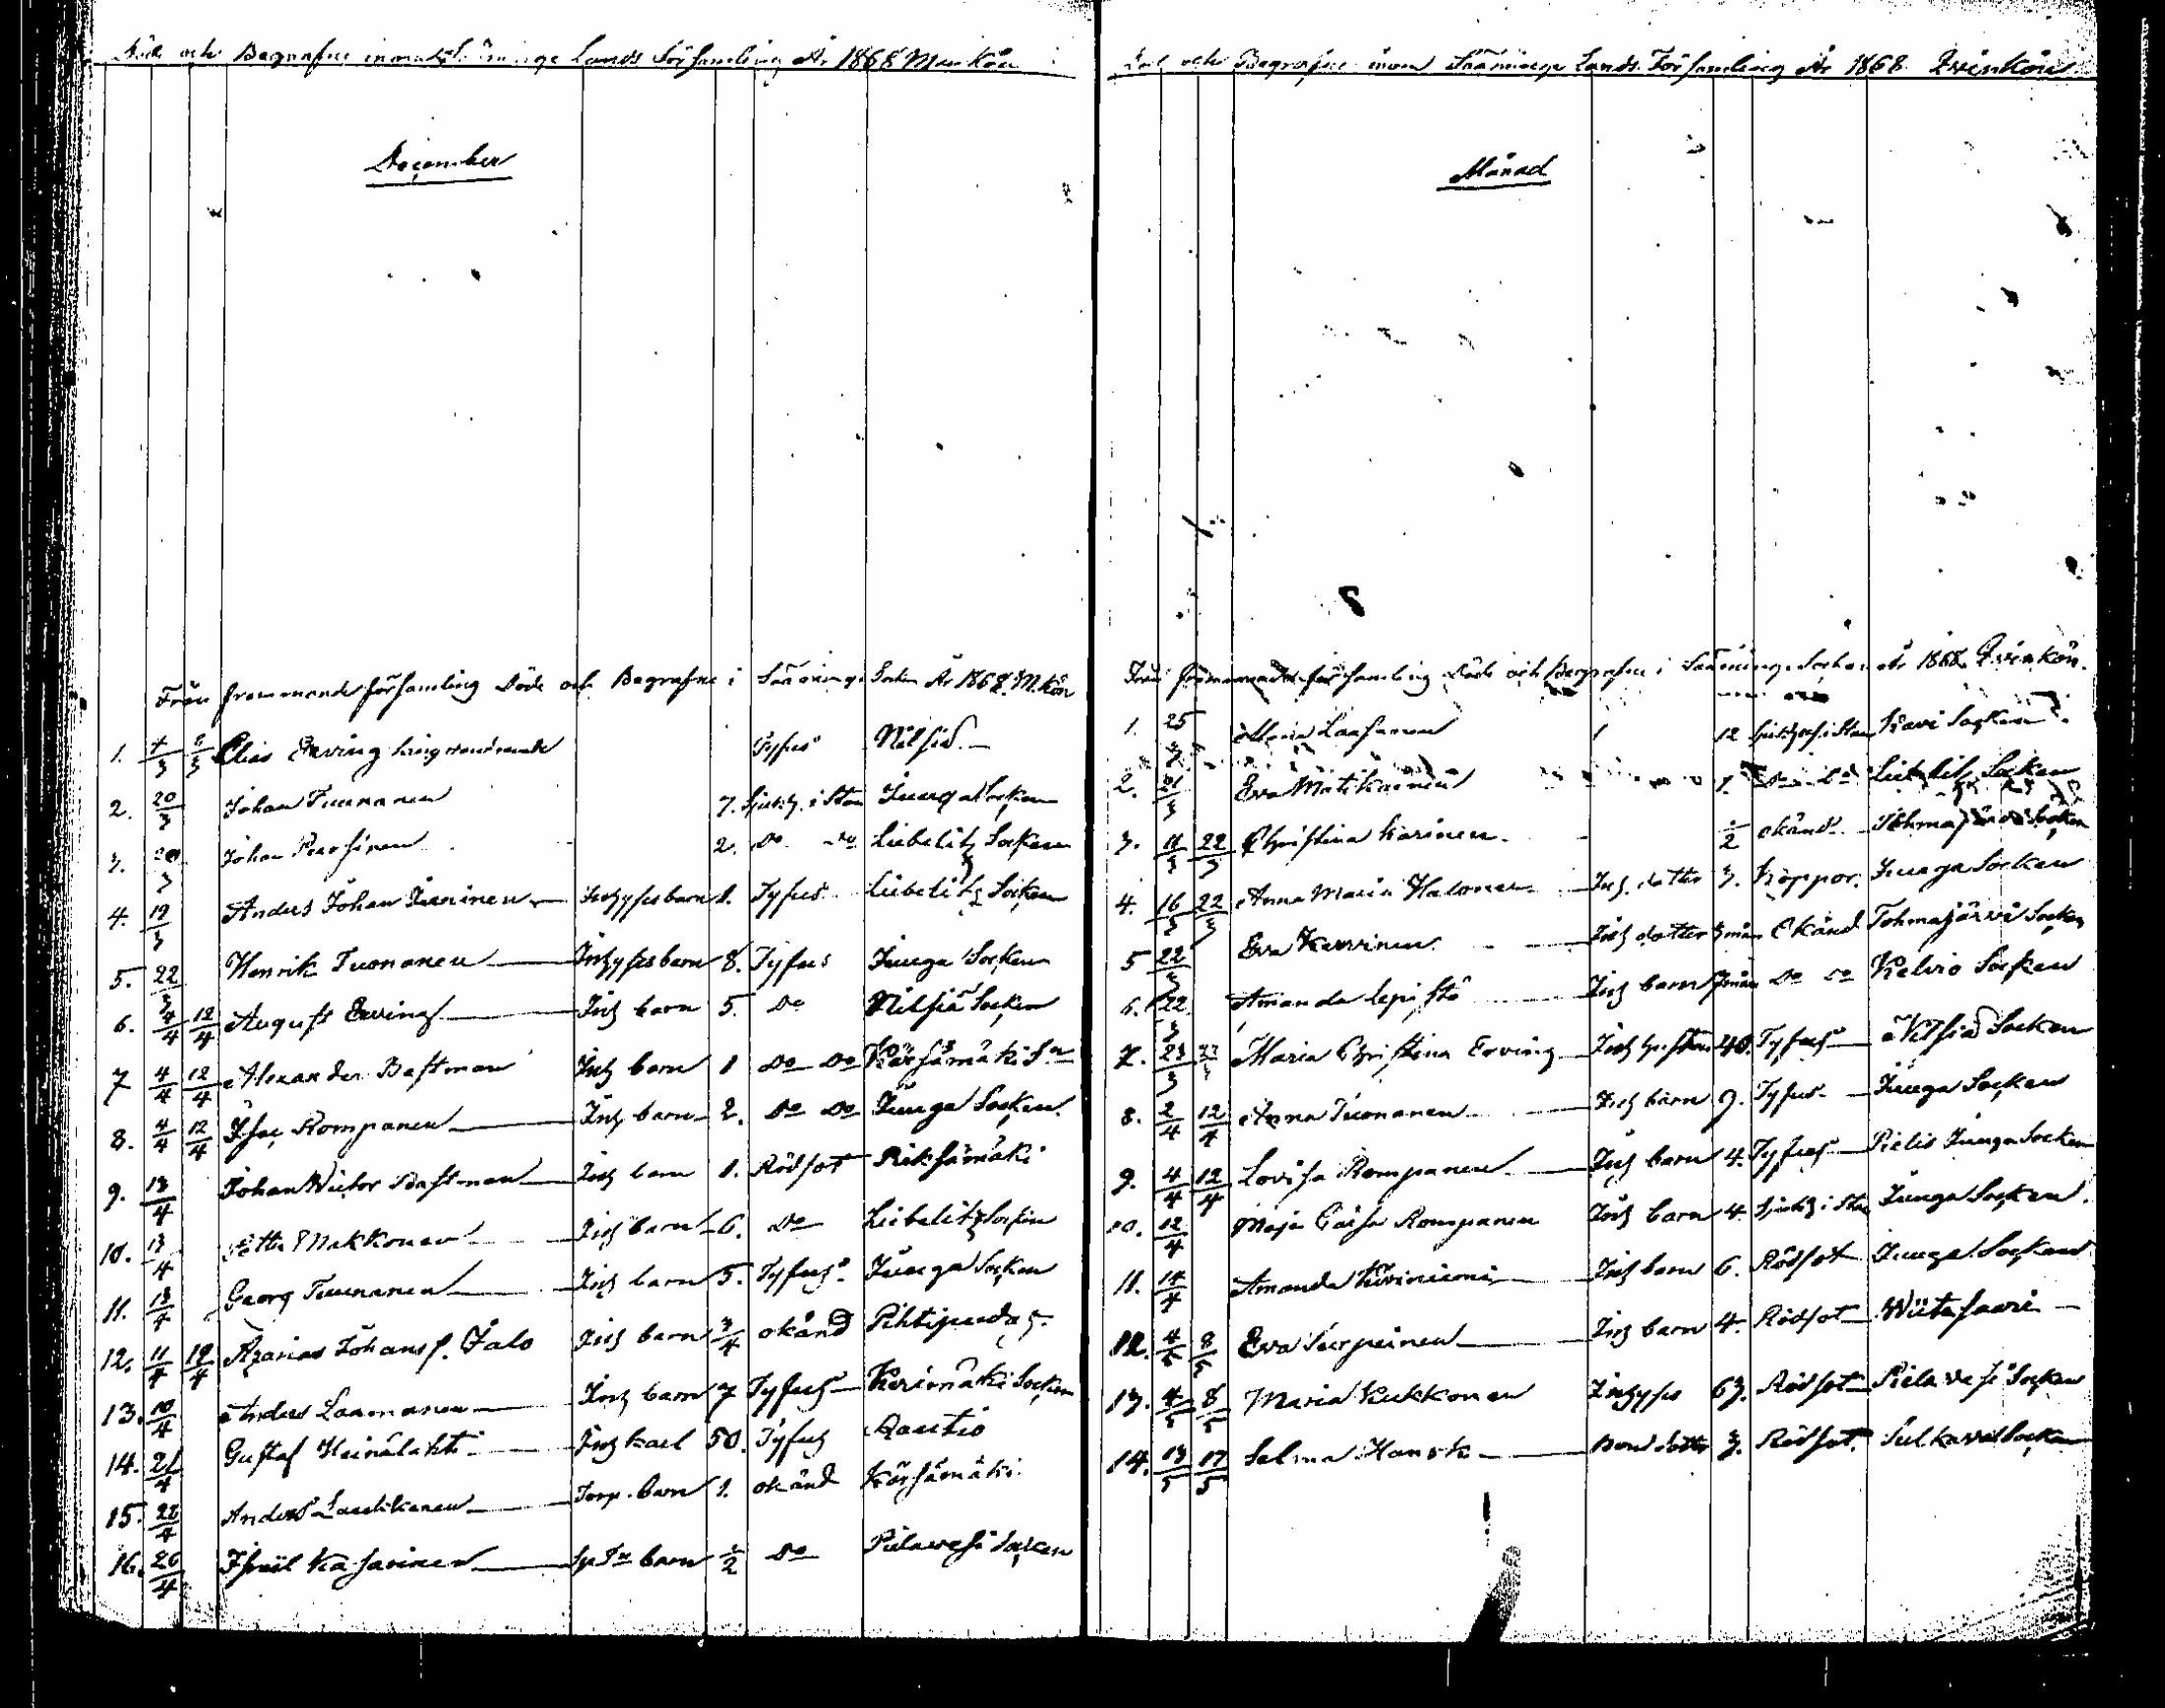 Döde och Begrafne inom Sääminge Lands Församling År 1868 Mankön
December
Från främmande församling Döde och Begrafne i Sääminge Socken År 1868. M.kön
1. 3 3 Elias Erving Tyfus Nilsiä
2. 20/3 Johan Tuunanen 7. Sjukh. i Stan Juuga Socken
3. 20/3 Johan 2. Do Do Liebelitz Socken
4. 19/3 Anders Johan Inhyses barn 1. Tyfus Liebelitz Socken
5. 22/3 Henrik Tuononen Inhyses barn 8. Tyfus Juuga Socken
6. 4/4 12/4 August Erving Inh barn 5. Do Nilsiä Socken
7 4/4 12/4 Alexander Bastman Inh barn 1 Do Do Kärsämäki Sn
8. 4/4 12/4 Isac Rompanen Inh barn 2. Do Do Juuga Socken.
9. 13/4 Johan Victor Bastman Inh barn 1. Rödsot
10. 13/4 Petter Makkonen Inh barn 6. Do Liebelitz Socken
11. 13/4 Georg Tuunanen Inh barn 5. Tyfus Juuga Socken
12. 11/4 12/4 Azarias Johans s. Jalo Inh barn 3/4 okänd Pihtipudas.
13. 10/4 Anders Laamanen Inh barn 7 Tyfus Kerimäki Socken
14. 21/4 Gustaf Heinälahti Inh karl 50. Tyfus Rautio
15. 28/4 Anders Lautikanen Torp. barn 1. okänd Kärsämäki
16. 26/4 Israel Kasarinen barn 1/2 Do Pielavesi Socken
Död och Begrafne inom Sääminge Lands Församling År 1868 Qvinkön
Månad
Från främmande församling Döde och Begrafne i Sääminge Socken År 1868. Qvinkön.
1. 25/3 Maria Laasanen 12 Sjukh i Stan Kavi Socken
2. 21/3 Eva Matikainen 1. Do Do Liebelitz Socken
3. 11/3 22/3 Christina Karinen 1/2 okänd Tohmajärvi Socken
4. 16/3 22/3 Anna Maria Halonen Inh. dotter 3. Koppor. Juuga Socken
5 22/3 Eva Inh dotter 3 mån Okänd Tohmajärvi Socken
6. 22/3 Amanda Lepistö Inh barn mån Do Do Kelvio Socken
7. 23/3 Maria Christina Erving Inh hustru 40. Tyfus Nilsiä Socken
8. 2/4 12/4 Anna Tuononen Inh barn 9. Tyfus Juuga Socken
9. 4/4 12/4 Lovisa Rompanen Inh barn 4. Tyfus Pielis Juuga Socken
10. 12/4 Maja Caisa Rompanen Inh barn 4. Sjukh i Stan Juuga Socken.
11. 14/4 Amanda Kiviniemi Inh barn 6. Rödsot Juuga Socken
12. 4/5 8/5 Eva Turpeinen Inh barn 4. Rödsot Wiitasaari
13. 4/5 8/5 Maria Kukkonen Inhyses 63. Rödsot Pielavesi Socken
14. 13/5 17/5 Selma Hansk Bond dotter 3. Rödsot. Sulkava Socken